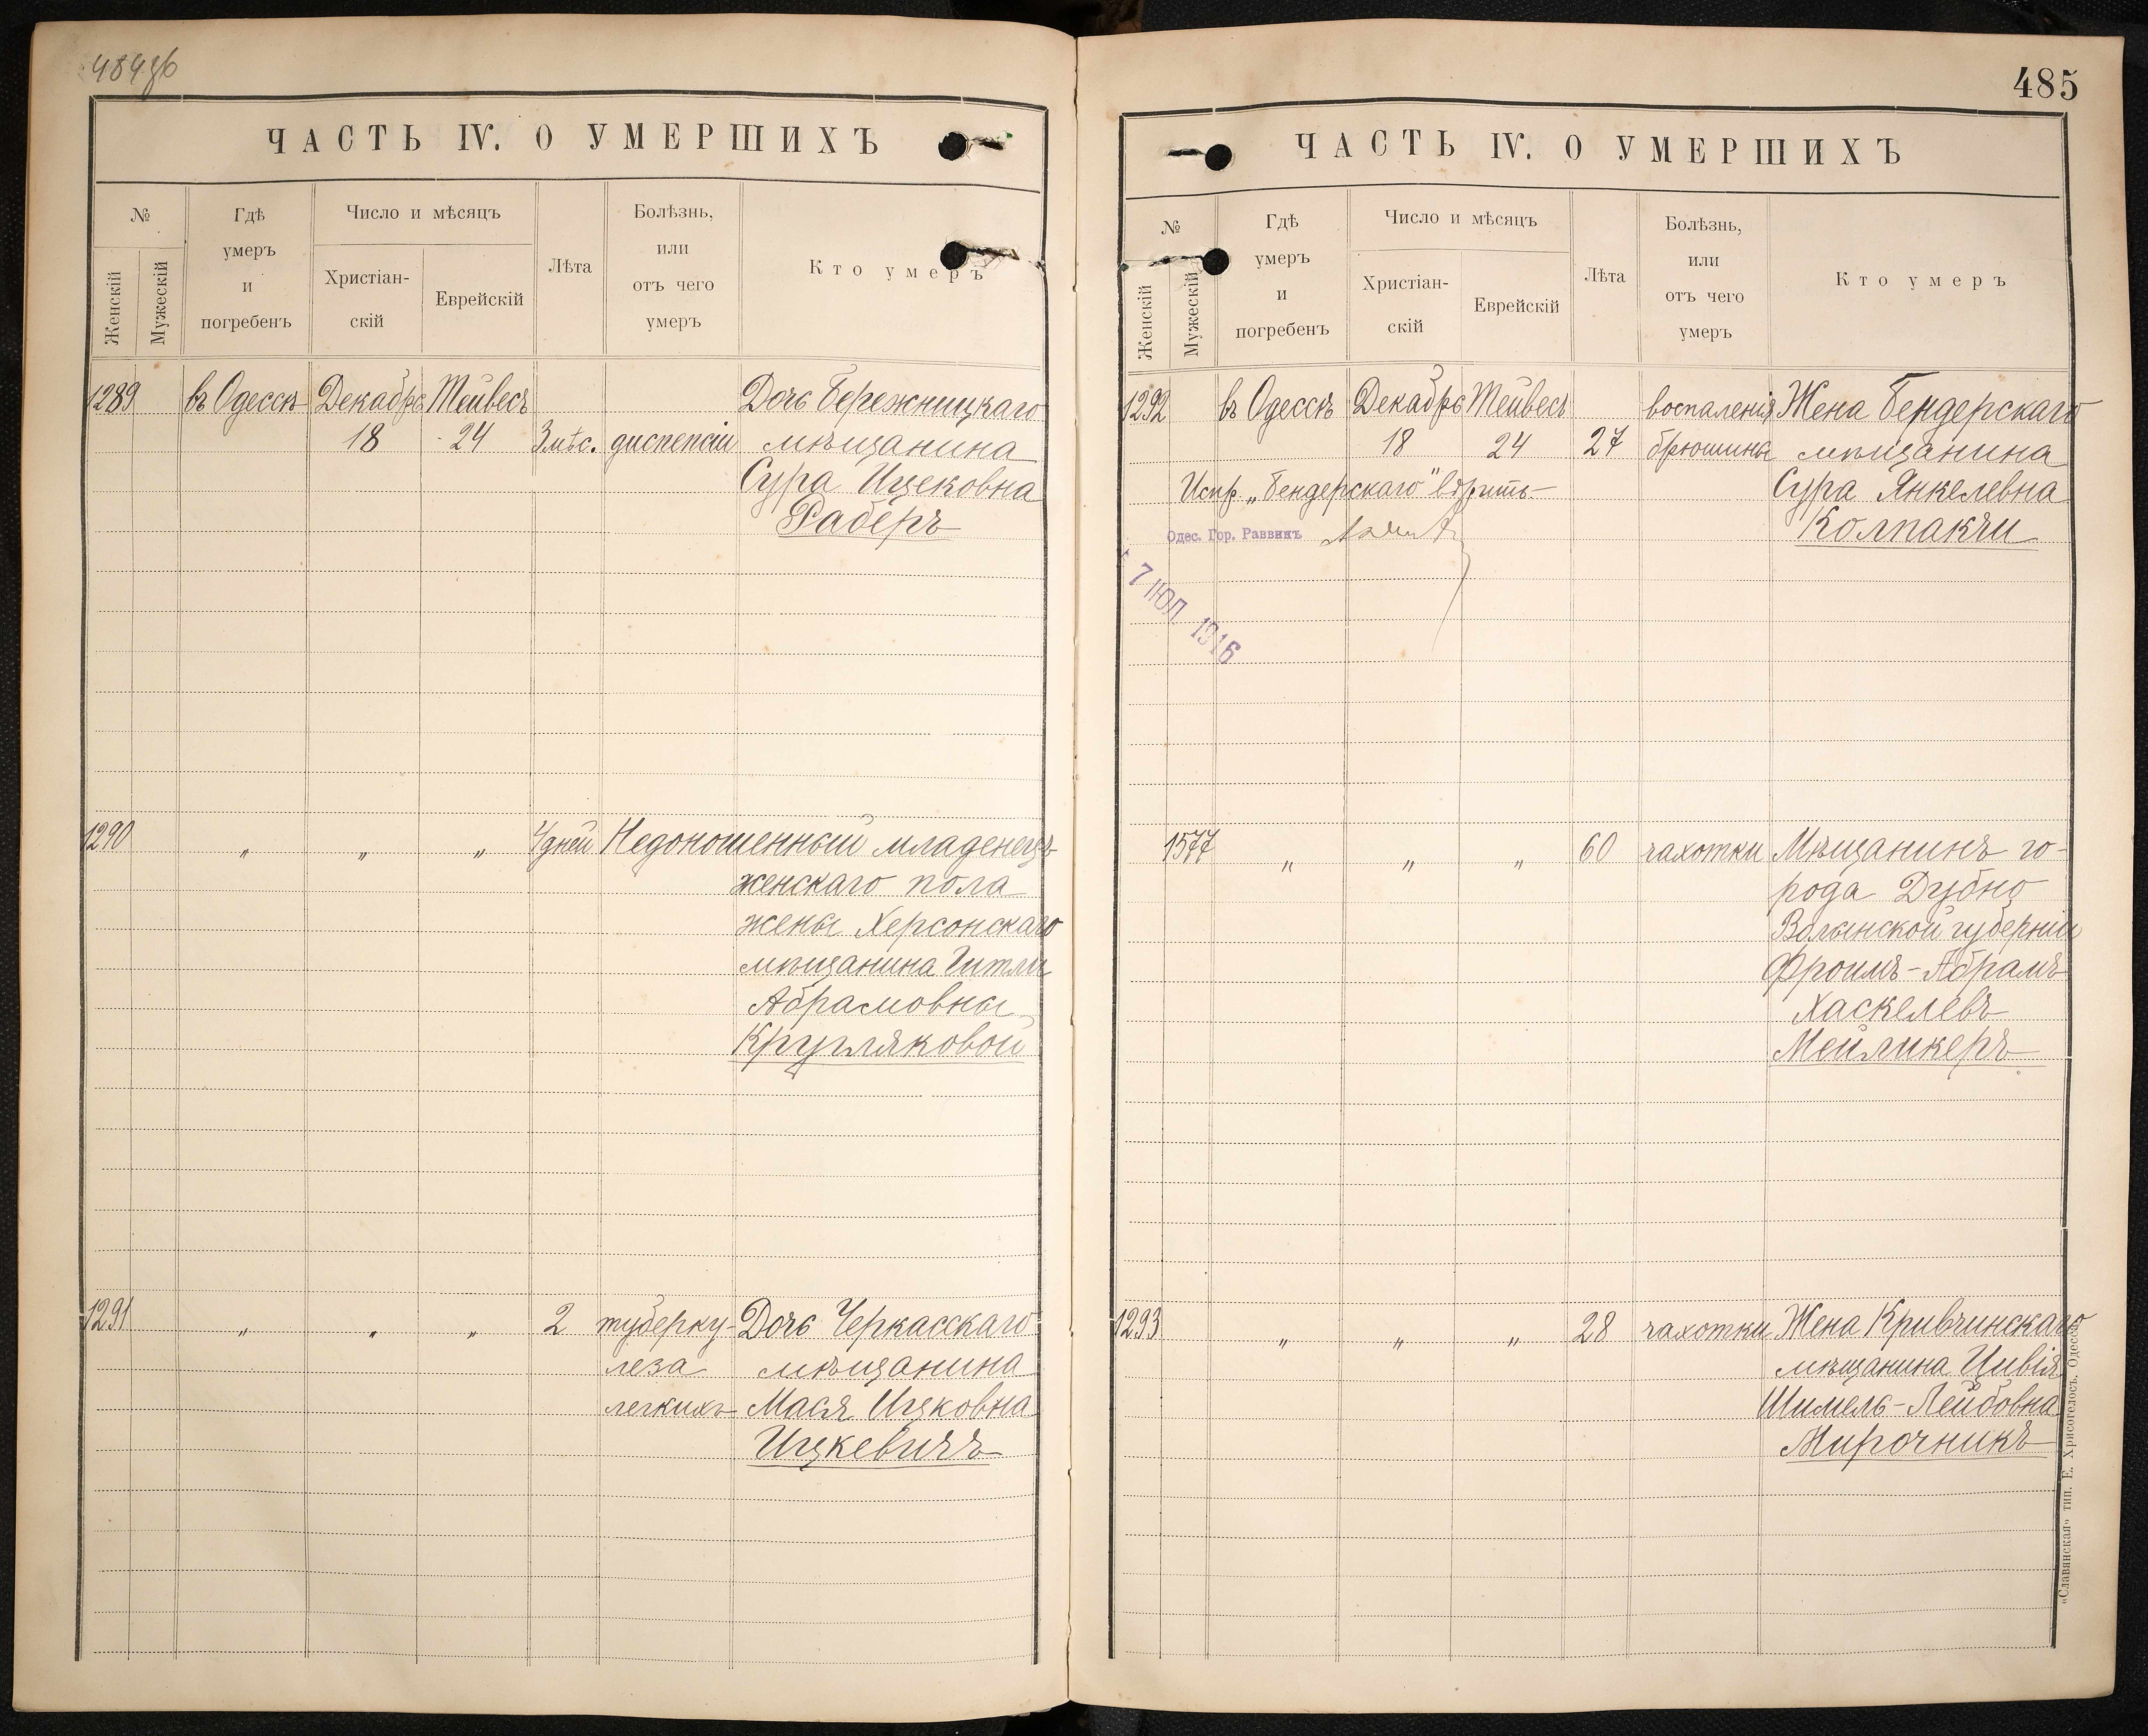 484об
ЧАСТЬ IV. О УМЕРШИХЪ
№
Женскій
Мужескій
Гдѣ
умеръ
и
погребенъ
Число и мѣсяцъ
Христіан-
скій
Еврейскій
Лѣта
Болѣзнь,
или
отъ чего
умеръ
Кто умеръ
1289 въ Одессѣ Декабрь Тейвесъ Дочь Бережницкаго
18 24 3 мѣс. диспепсіи мѣщанина
Сура Ицековна
Раберъ
1290 „ „ „ 4 дней Недоношенный младенецъ
женскаго пола
жены Херсонскаго
мѣщанина Гитли
Абрамовны
Кругляковой
1291 „ „ „ 2 туберку- Дочь Черкасскаго
леза мѣщанина
легкихъ Мася Ицковна
Ицкевичъ
485
ЧАСТЬ IV. О УМЕРШИХЪ
№
Женскій
Мужескій
Гдѣ
умеръ
и
погребенъ
Число и мѣсяцъ
Христіан-
скій
Еврейскій
Лѣта
Болѣзнь,
или
отъ чего
умеръ
Кто умеръ
1292 въ Одессѣ Декабрь Тейвесъ воспаленія Жена Бендерскаго
18 24 27 брюшины мѣщанина
Испр. „Бендерскаго" вѣрить Сура Янкелевна
Одес. Гор. Раввинъ Колпакчи
7 ІЮЛ 1916
1577 „ „ „ 60 чахотки Мѣщанинъ го-
рода Дубно
Волынской губерніи
Фроимъ-Абрамъ
Хаскелевъ
Мейликеръ
1293 „ „ „ 28 чахотки Жена Кривчинскаго
мѣщанина Цивія
Шимель-Лейбовна
Мирочникъ
«Славянская» тип. Е. Хрисогелосъ. Одесса.